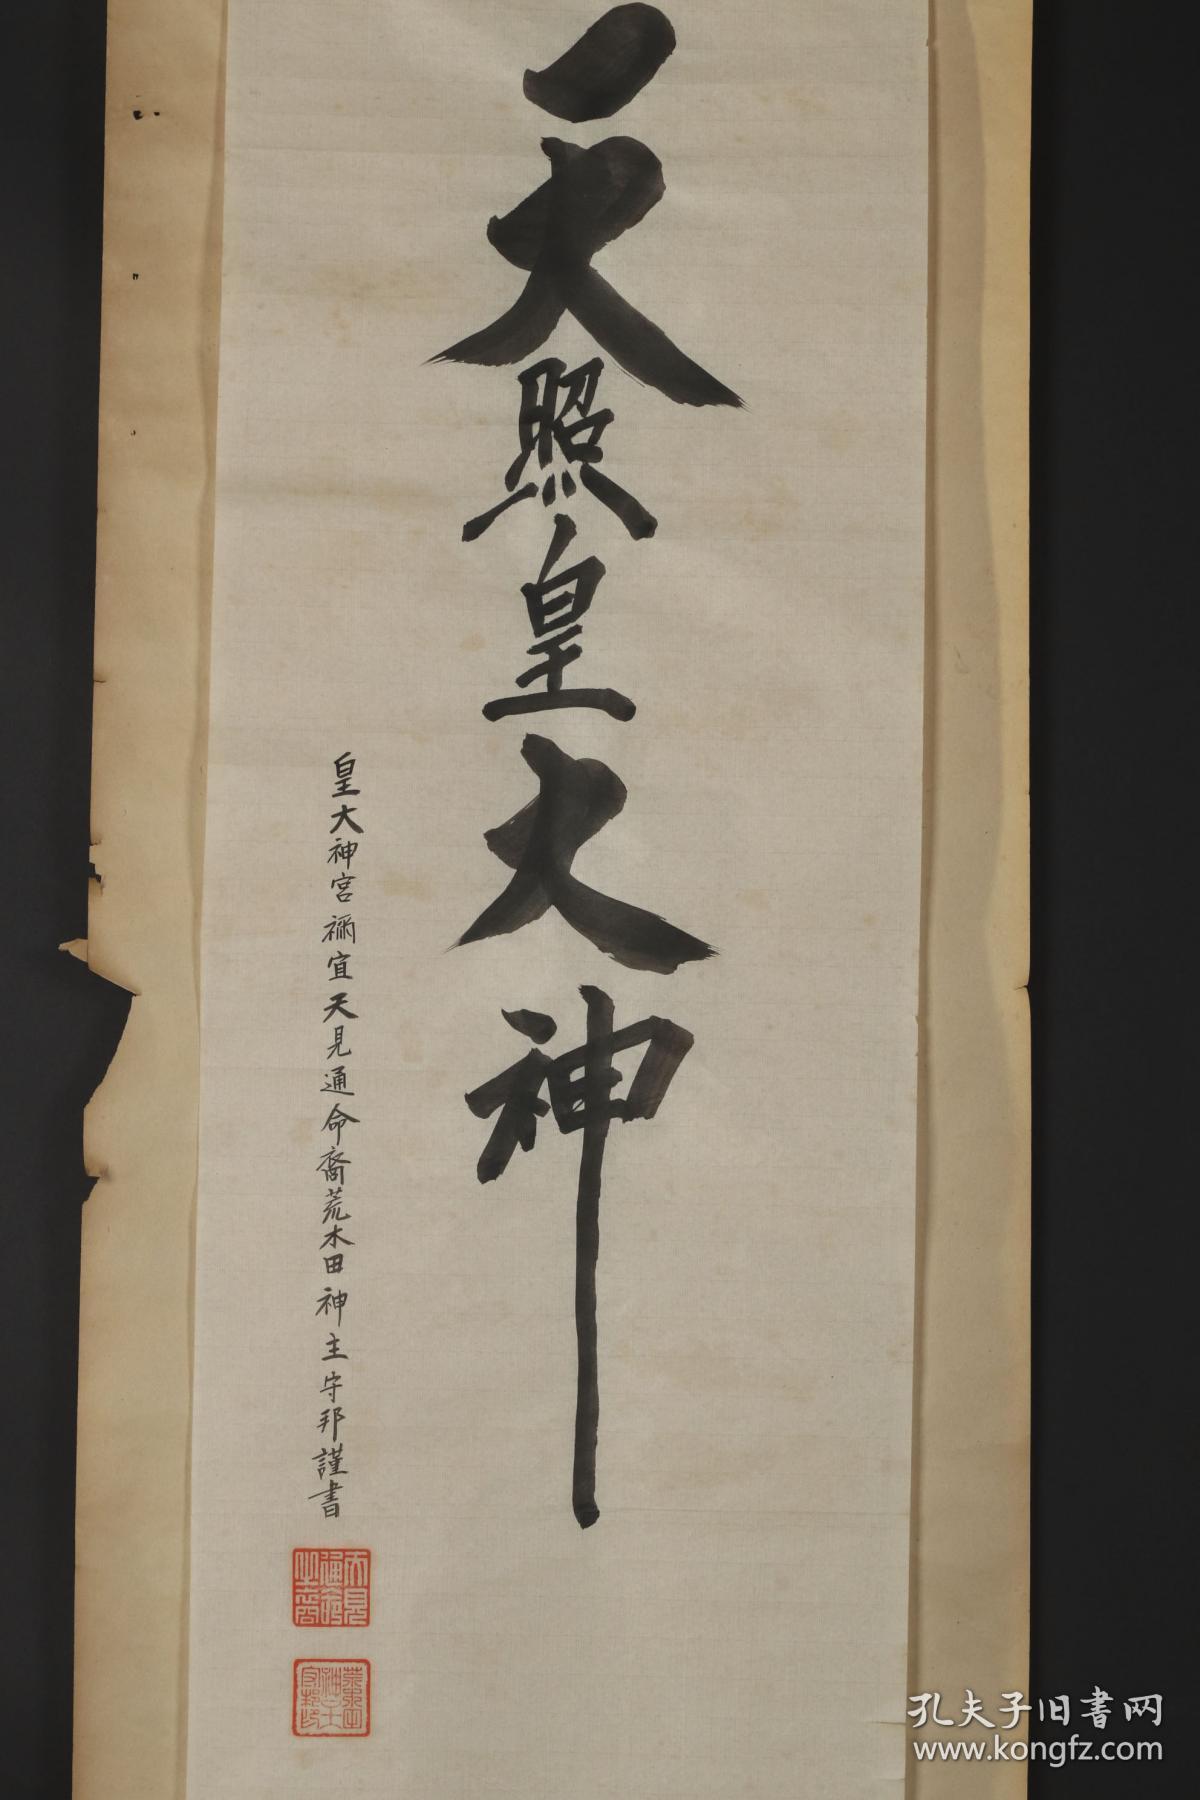 天照皇大神
皇大神宮禰宜天見通命裔荒木田神主守邦謹書
天見通命之裔
孔夫子旧书网
www.kongfz.com